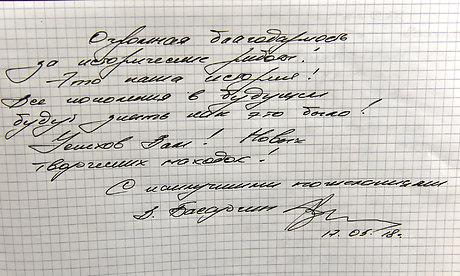 Огромная благодарность
за исторические работы!
Это наша история!
Все поколения в будущем
будут знать как это было!
Успехов Вам! Новых
творческих находок!
С наилучшими пожеланиями
17.05.18г.